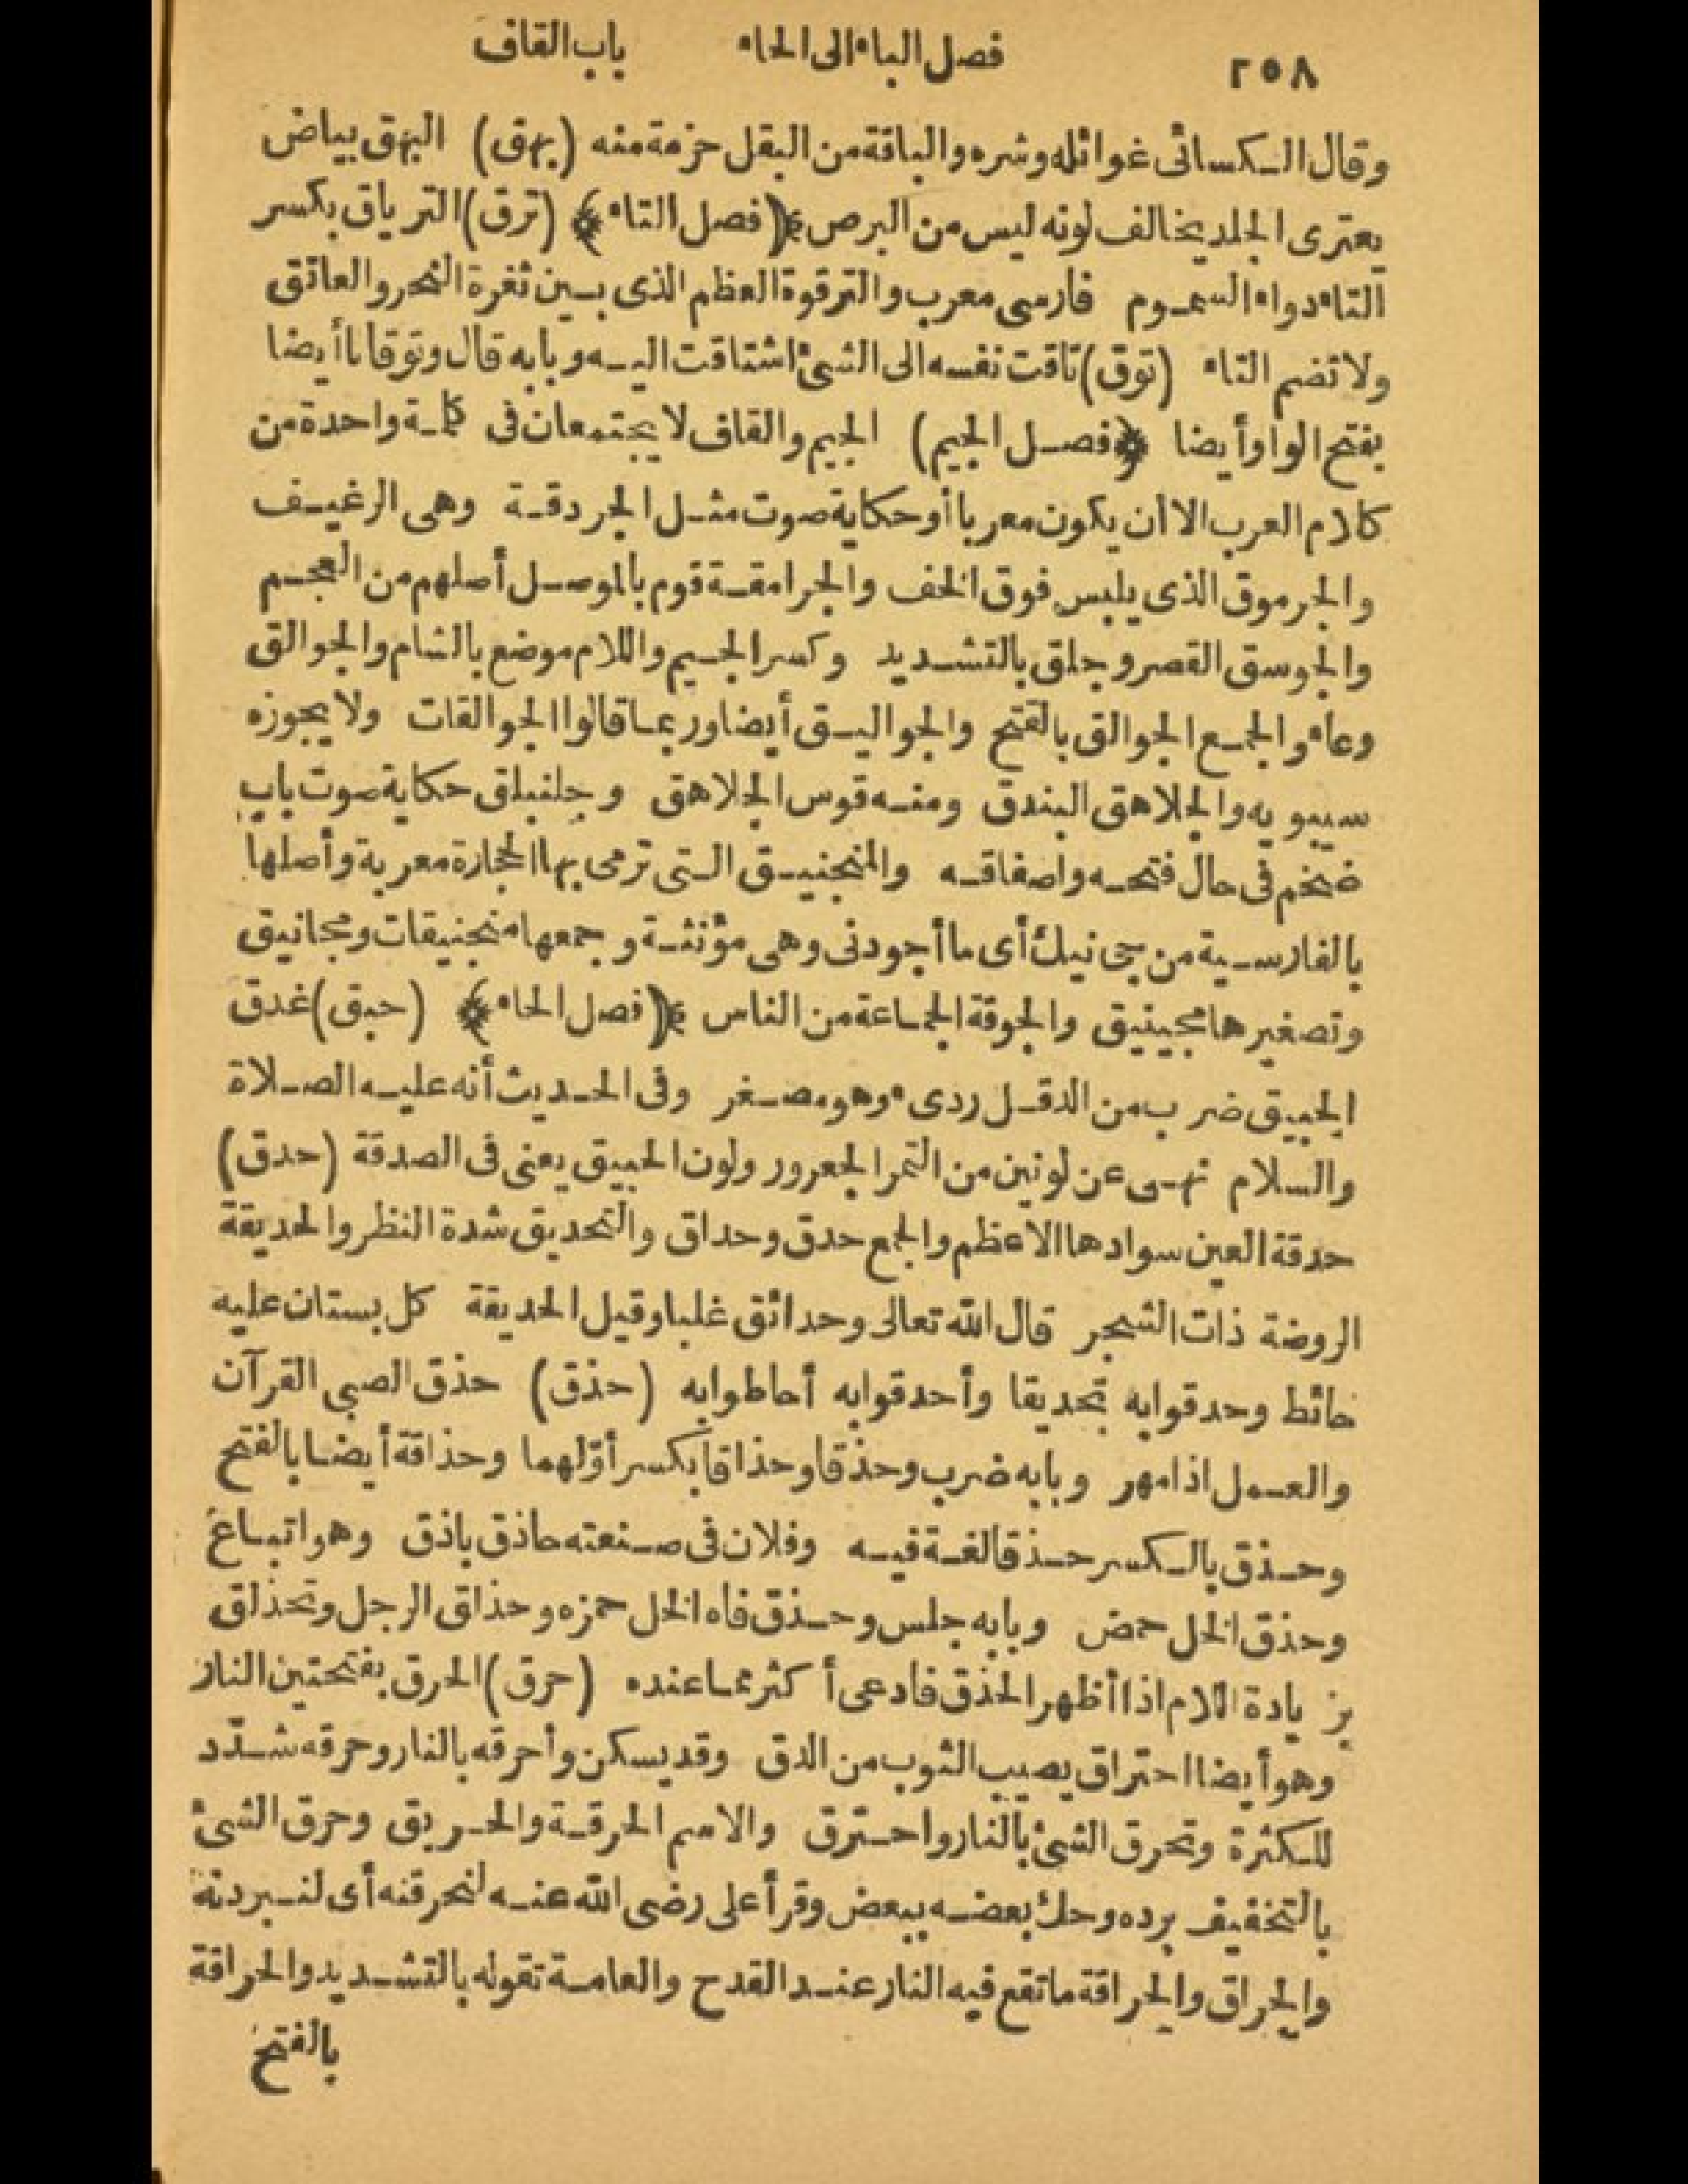 ٢٥٨ فصل الباء الى الحاء باب القاف
وقال الكسائى غوائله وشره والباقة من البقل حزمة منه (بهق) البهق بياض
يعترى الجلد يخالف لونه ليس من البرص ﴿فصل التاء﴾ (ترق) الترياق بكسر
التاء دواء السموم فارسى معرب والترقوة العظم الذى بين ثغرة النحر والعاتق
ولا تضم التاء (توق) تاقت نفسه الى الشئ اشتاقت اليه وبابه قال وتوقانا أيضا
بفتح الواو أيضا ﴿فصل الجيم) الجيم والقاف لا يجتمعان فى كلمة واحدة من
كلام العرب الا أن يكون معربا أو حكاية صوت مثل الجردقة وهى الرغيف
والجرموق الذى يلبس فوق الخف والجرامقة قوم بالموصل أصلهم من العجم
والجوسق القصر وجلق بالتشديد وكسر الجيم واللام موضع بالشام والجوالق
وعاء والجمع الجوالق بالفتح والجواليق أيضا وربما قالوا الجوالقات ولا يجوزه
سيبويه والجلاهق البندق ومنه قوس الجلاهق وجلنبلق حكاية صوت باب
ضخم فى حال فتحه واصفاقه والمنجنيق التى ترمى بها الحجارة معربة وأصلها
بالفارسية من جى نيك أى ما أجودنى وهى مؤنثة وجمعها منجنيقات ومجانيق
وتصغيرها مجينيق والجوقة الجماعة من الناس ﴿فصل الحاء﴾ (حبق) غدق
الحبيق ضرب من الدقل ردىء وهو مصغر وفى الحديث أنه عليه الصلاة
والسلام نهى عن لونين من التمر الجعرور ولون الحبيق يعنى فى الصدقة (حدق)
حدقة العين سوادها الاعظم والجمع حدق وحداق والتحديق شدة النظر والحديقة
الروضة ذات الشجر قال الله تعالى وحدائق غلبا وقيل الحديقة كل بستان عليه
حائط وحدقوا به تحديقا وأحدقوا به أحاطوا به (حذق) حذق الصبى القرآن
والعمل اذا مهر وبابه ضرب وحذقا وحذاقا بكسر أوّلهما وحذاقة أيضا بالفتح
وحذق بالكسر حذقا لغة فيه وفلان فى صنعته حاذق باذق وهو اتباع
وحذق الخل حمض وبابه جلس وحذق فاه الخل حمزه وحذلق الرجل وتحذلق
بزيادة اللام اذا أظهر الحذق فادعى أكثر مما عنده (حرق) الحرق بفتحتين النار
وهو أيضا احتراق يصيب الثوب من الدق وقد يسكن وأحرقه بالنار وحرقه شدّد
للكثرة وتحرق الشئ بالنار واحترق والاسم الحرقة والحريق وحرق الشئ
بالتخفيف برده وحك بعضه ببعض وقرأ على رضى الله عنه لنحرقنه أى لنبردنه
والحراق والحراقة ما تقع فيه النار عند القدح والعامة تقوله بالتشديد والحراقة
بالفتح